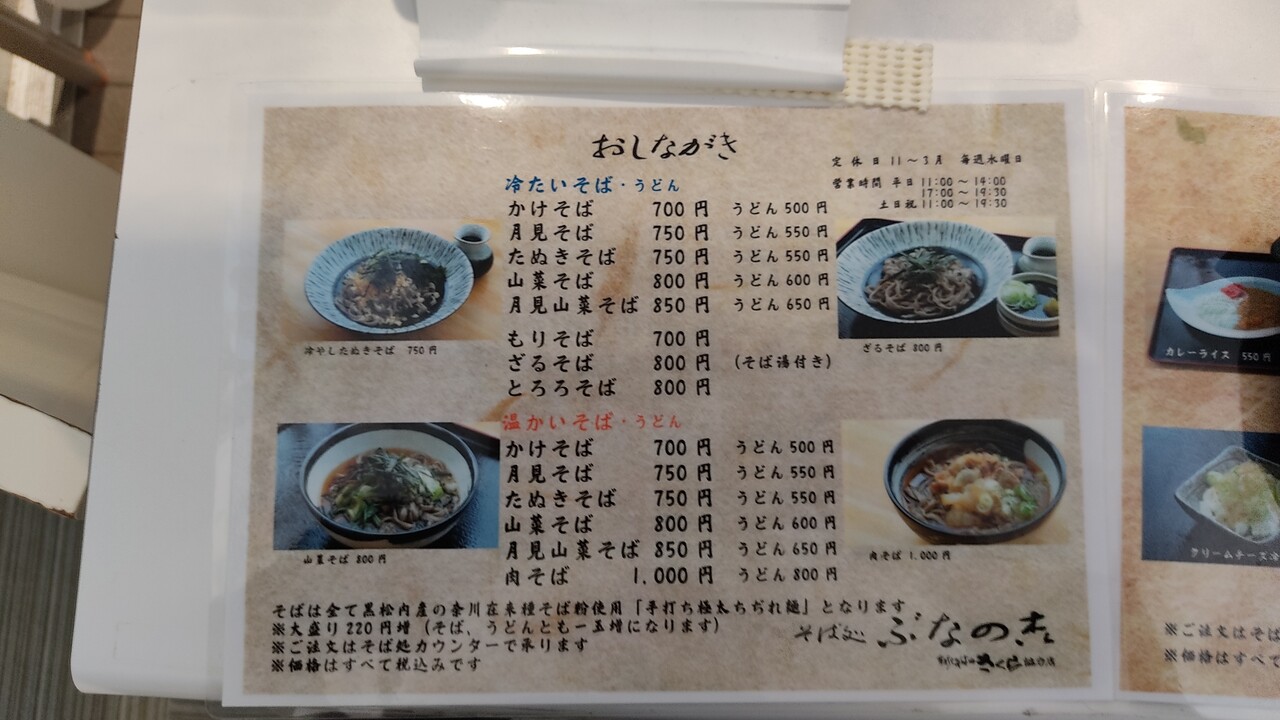 おしながき
定休日 11～3月 毎週水曜日
営業時間 平日 11:00～14:00
17:00～19:30
土日祝 11:00～19:30
冷たいそば・うどん
かけそば 700円 うどん 500円
月見そば 750円 うどん 550円
たぬきそば 750円 うどん 550円
山菜そば 800円 うどん 600円
月見山菜そば 850円 うどん 650円
もりそば 700円
ざるそば 800円 (そば湯付き)
とろろそば 800円
冷やしたぬきそば 750円
ざるそば 800円
温かいそば・うどん
かけそば 700円 うどん 500円
月見そば 750円 うどん 550円
たぬきそば 750円 うどん 550円
山菜そば 800円 うどん 600円
月見山菜そば 850円 うどん 650円
肉そば 1,000円 うどん 800円
山菜そば 800円
肉そば 1,000円
そばは全て黒松内産の奈川在来種そば粉使用「手打ち極太ちぢれ麺」となります
※大盛り220円増（そば、うどんとも一玉増になります）
※ご注文はそば処カウンターで承ります
※価格はすべて税込みです
そば処 ぶなの杜
カレーライス 550円
クリームチーズ
※ご注文はそば
※価格はすべて